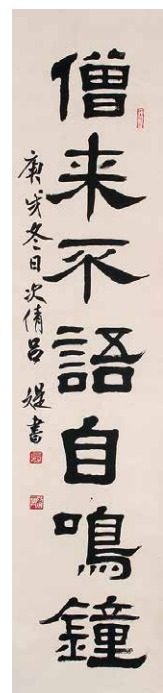 僧来不語自鳴鐘
庚戌冬日次倩吕媞書